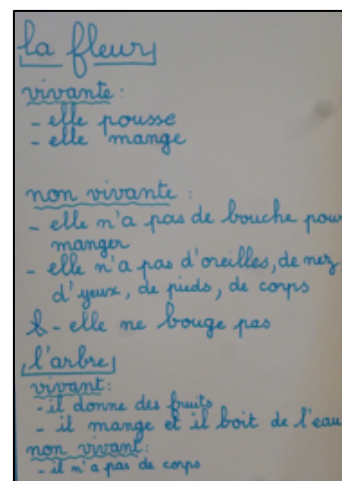 la fleur
vivante :
- elle pousse
- elle mange
non vivante :
- elle n'a pas de bouche pour
manger
- elle n'a pas d'oreilles, de nez,
d'yeux, de pieds, de corps
- elle ne bouge pas
l'arbre
vivant :
- il donne des fruits
- il mange et il boit de l'eau
non vivant :
- il n'a pas de corps